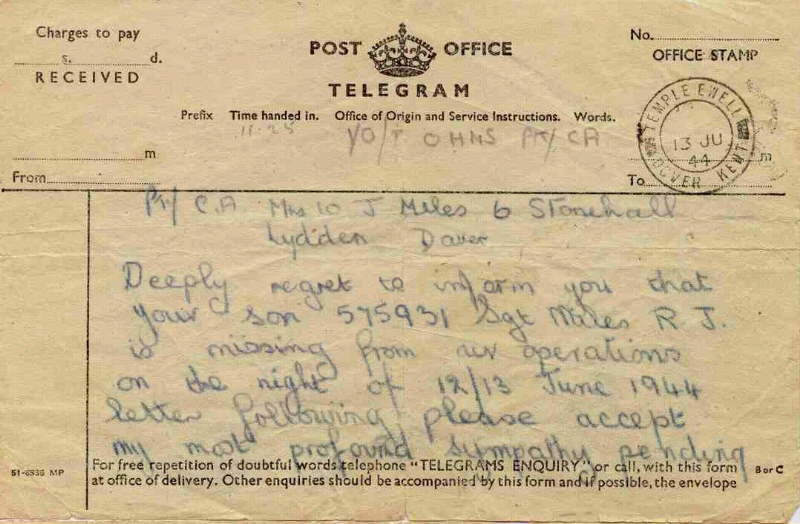 Charges to pay
s. d.
RECEIVED
POST OFFICE
TELEGRAM
No.
OFFICE STAMP
Prefix Time handed in. Office of Origin and Service Instructions. Words.
11.25 OHMS PTY CA
TEMPLE EWELL
13 JU
44
DOVER KENT
m
m
From
To
PTY C.A Mrs J Miles 6 Stonehall
Lydden Dover
Deeply regret to inform you that
your son 575931 Sgt Miles R J.
is missing from air operations
on the night of 12/13 June 1944
letter following please accept
my most profound sympathy pending
51-6938 MP
For free repetition of doubtful words telephone "TELEGRAMS ENQUIRY," or call, with this form
at office of delivery. Other enquiries should be accompanied by this form and if possible, the envelope
B or C